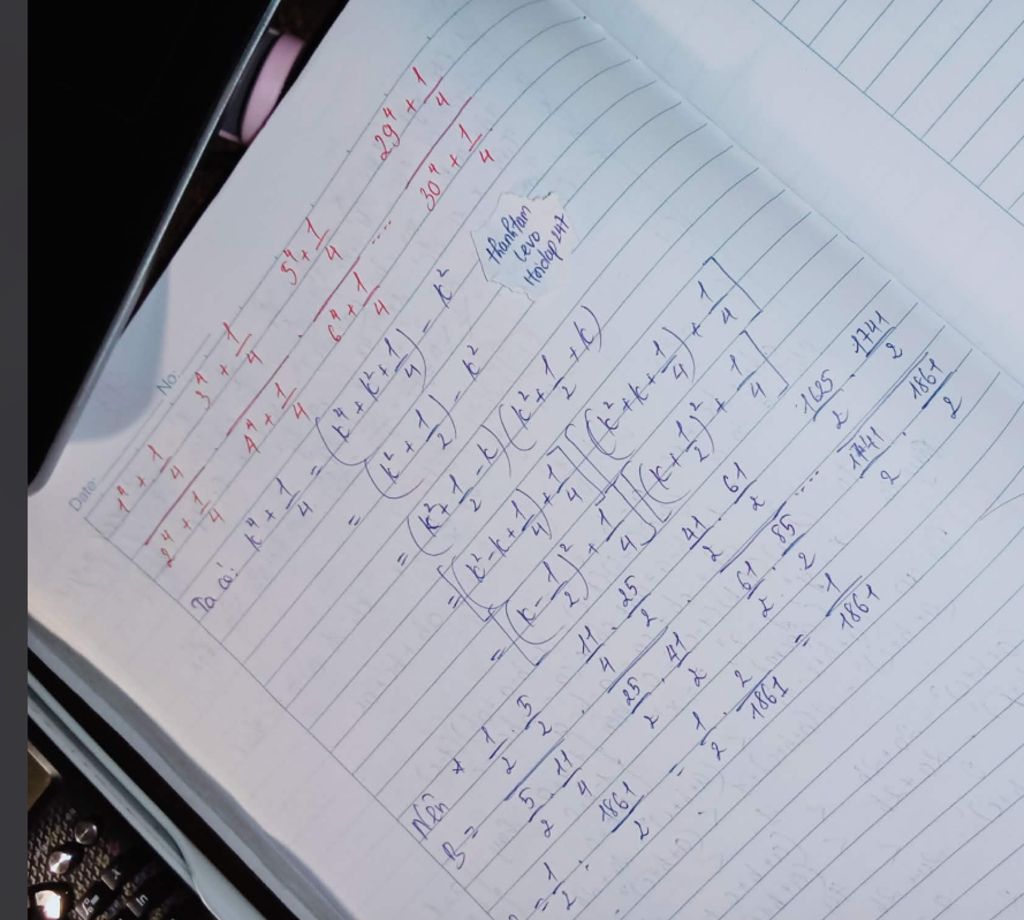 Date:
No:
1⁴ + 1/4 3⁴ + 1/4 5⁴ + 1/4 29⁴ + 1/4
2⁴ + 1/4 . 4⁴ + 1/4 . 6⁴ + 1/4 .... 30⁴ + 1/4
thanhtam
Levo
Hoidap247
Ta có: k⁴ + 1/4 = (k⁴ + k² + 1/4) - k²
= (k² + 1/2) - k²
= (k² + 1/2 - k)(k² + 1/2 + k)
= [(k² - k + 1/4) + 1/4][(k² + k + 1/4) + 1/4]
= [(k - 1/2)² + 1/4][(k + 1/2)² + 1/4]
Nên
B = 1/2 . 5/2 . 11/4 . 25/2 . 41/2 . 61/2 .... 1625/2 . 1741/2
5/2 . 11/4 . 25/2 . 41/2 . 61/2 . 85/2 1741/2 . 1861/2
= 1/2 : 1861/2 = 1/2 . 2/1861 = 1/1861